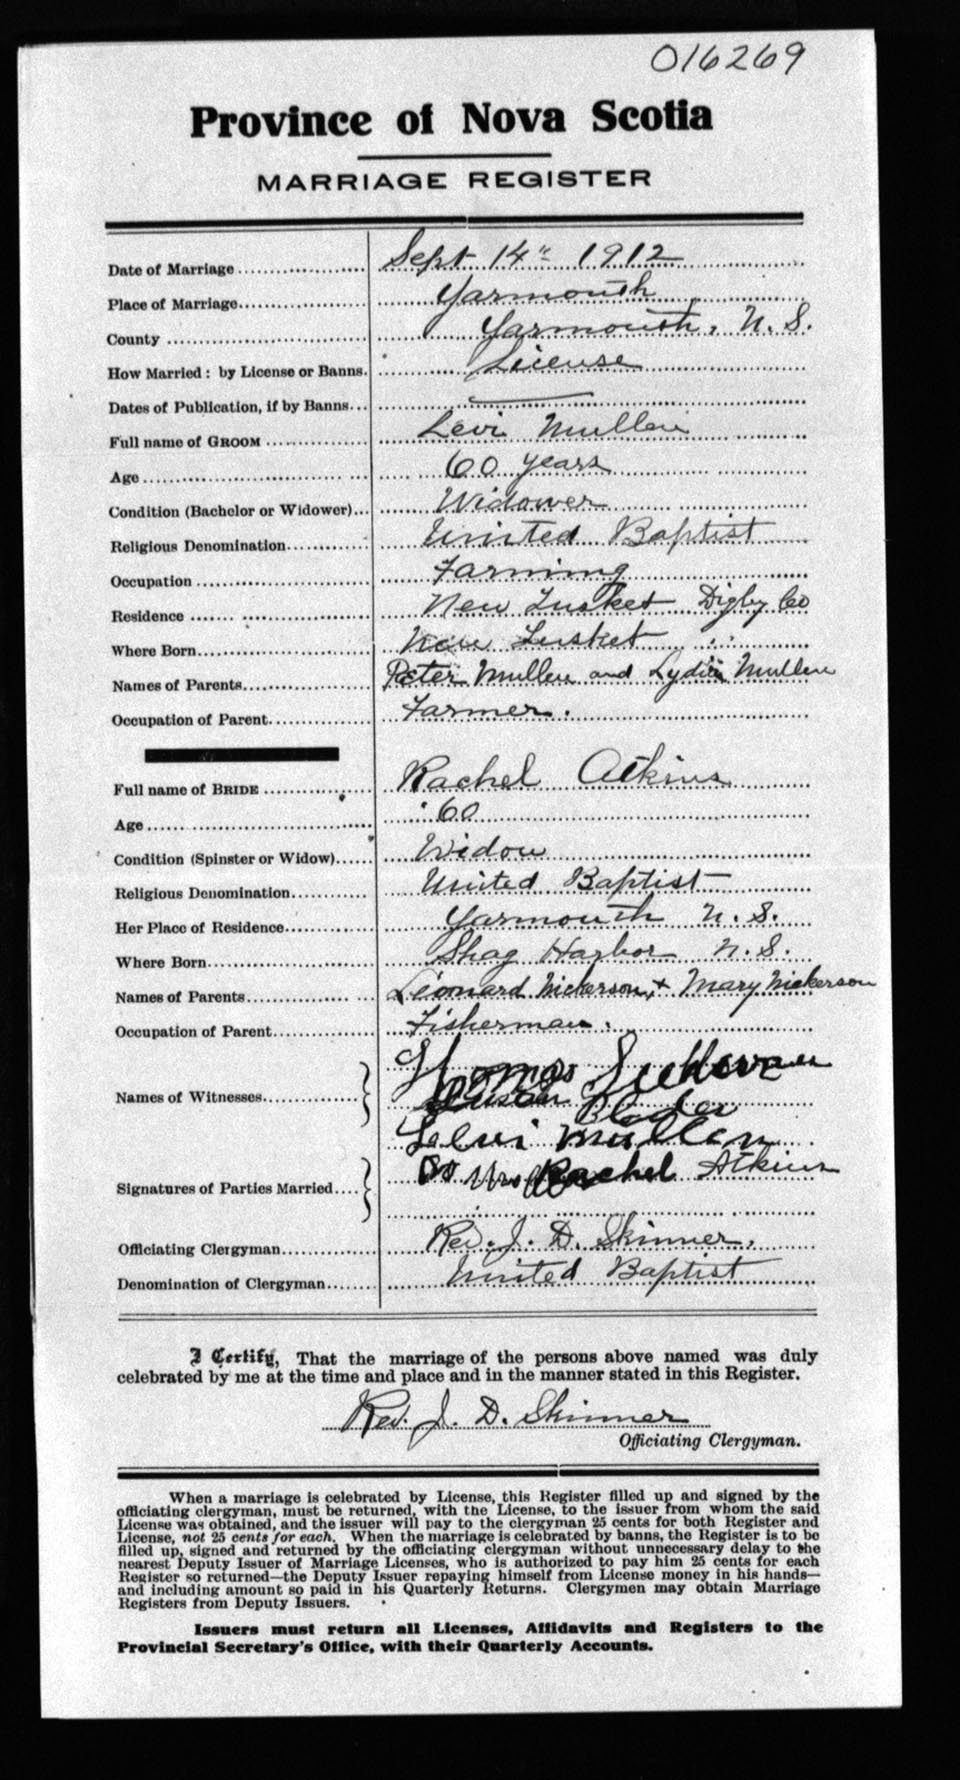 016269
Province of Nova Scotia
MARRIAGE REGISTER
Date of Marriage Sept 14" 1912
Place of Marriage Yarmouth
County Yarmouth, N. S.
How Married: by License or Banns. License
Dates of Publication, if by Banns
Full name of GROOM Levi Mullen
Age 60 years
Condition (Bachelor or Widower) Widower
Religious Denomination United Baptist
Occupation Farming
Residence New Tusket Digby Co
Where Born New Tusket
Names of Parents Peter Mullen and Lydia Mullen
Occupation of Parent Farmer.
Full name of BRIDE Rachel Atkins
Age 60
Condition (Spinster or Widow) Widow
Religious Denomination United Baptist
Her Place of Residence Yarmouth N. S.
Where Born Shag Harbor N. S.
Names of Parents Leonard Nickerson, + Mary Nickerson
Occupation of Parent Fisherman.
Thomas
Names of Witnesses
Mullen
Rachel Atkins
Signatures of Parties Married
Officiating Clergyman Rev. J. D. Skinner,
Denomination of Clergyman United Baptist
I Certify, That the marriage of the persons above named was duly
celebrated by me at the time and place and in the manner stated in this Register.
Rev. J. D. Skinner
Officiating Clergyman.
When a marriage is celebrated by License, this Register filled up and signed by the
officiating clergyman, must be returned, with the License, to the issuer from whom the said
License was obtained, and the issuer will pay to the clergyman 25 cents for both Register and
License, not 25 cents for each. When the marriage is celebrated by banns, the Register is to be
filled up, signed and returned by the officiating clergyman without unnecessary delay to the
nearest Deputy Issuer of Marriage Licenses, who is authorized to pay him 25 cents for each
Register so returned—the Deputy Issuer repaying himself from License money in his hands—
and including amount so paid in his Quarterly Returns. Clergymen may obtain Marriage
Registers from Deputy Issuers.
Issuers must return all Licenses, Affidavits and Registers to the
Provincial Secretary's Office, with their Quarterly Accounts.